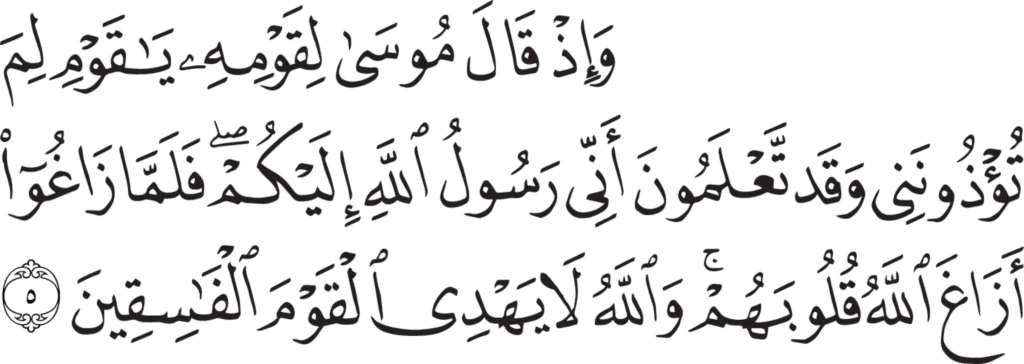 وَإِذْ قَالَ مُوسَىٰ لِقَوْمِهِۦ يَـٰقَوْمِ لِمَ
تُؤْذُونَنِى وَقَد تَّعْلَمُونَ أَنِّى رَسُولُ ٱللَّهِ إِلَيْكُمْ ۖ فَلَمَّا زَاغُوٓا۟
أَزَاغَ ٱللَّهُ قُلُوبَهُمْ ۚ وَٱللَّهُ لَا يَهْدِى ٱلْقَوْمَ ٱلْفَـٰسِقِينَ ٥